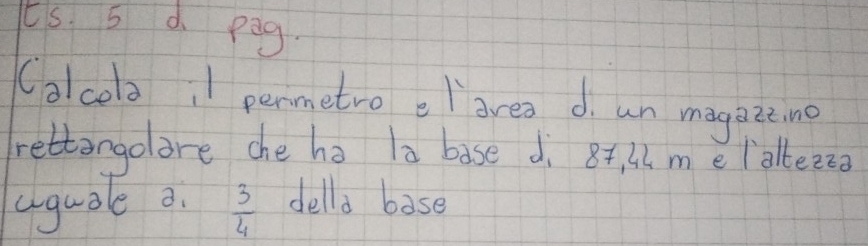 Es. 5 di pag.
Calcola il perimetro e l'area di un magazzino
rettangolare che ha la base di 87,44 m e l'altezza
uguale ai 3/4 della base